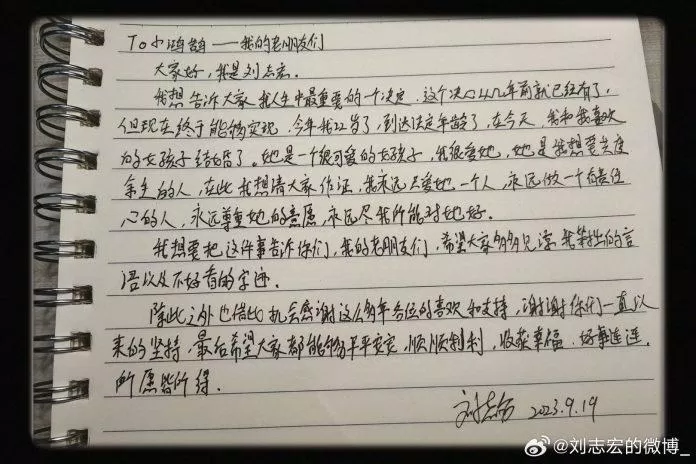 To小鸿鹄——我的老朋友们
大家好，我是刘志宏。
我想告诉大家我人生中最重要的一个决定，这个决心从几年前就已经有了，
但现在终于能够实现，今年我22岁了，到达法定年龄了，在今天，我和我喜欢
的女孩子结婚了，她是一个很可爱的女孩子，我很爱她，她是我想要共度
余生的人，在此我想请大家作证，我永远只爱她一个人，永远做一个有责任
心的人，永远尊重她的意愿，永远尽我所能对她好。
我想要把这件事告诉你们，我的老朋友们，希望大家多多见谅我笨拙的言
语以及不好看的字迹。
除此之外也借此机会感谢这么多年各位的喜欢和支持，谢谢你们一直以
来的坚持，最后希望大家都能够平平安安，顺顺利利，收获幸福，好事连连，
所愿皆所得。
刘志宏 2023.9.19
@刘志宏的微博_